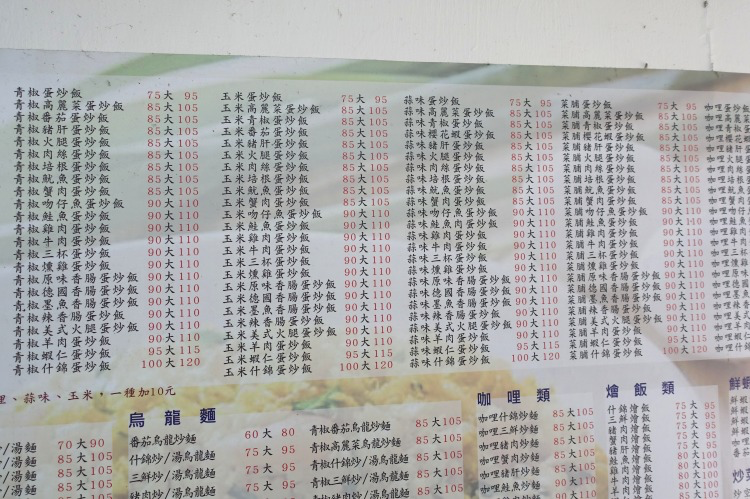 青椒蛋炒飯 75大 95
青椒高麗菜蛋炒飯 85大105
青椒番茄蛋炒飯 85大105
青椒豬肝蛋炒飯 85大105
青椒火腿蛋炒飯 85大105
青椒肉絲蛋炒飯 85大105
青椒培根蛋炒飯 85大105
青椒魷魚蛋炒飯 85大105
青椒蟹肉蛋炒飯 85大105
青椒吻仔魚蛋炒飯 90大110
青椒鮭魚蛋炒飯 90大110
青椒雞肉蛋炒飯 90大110
青椒牛肉蛋炒飯 90大110
青椒三杯蛋炒飯 90大110
青椒燻雞蛋炒飯 90大110
青椒原味香腸蛋炒飯 90大110
青椒德國香腸蛋炒飯 90大110
青椒墨魚香腸蛋炒飯 90大110
青椒辣香腸蛋炒飯 90大110
青椒美式火腿蛋炒飯 90大110
青椒羊肉蛋炒飯 90大110
青椒蝦仁蛋炒飯 95大115
青椒什錦蛋炒飯 100大120
玉米蛋炒飯 75大 95
玉米高麗菜蛋炒飯 85大105
玉米青椒蛋炒飯 85大105
玉米番茄蛋炒飯 85大105
玉米豬肝蛋炒飯 85大105
玉米火腿蛋炒飯 85大105
玉米肉絲蛋炒飯 85大105
玉米培根蛋炒飯 85大105
玉米魷魚蛋炒飯 85大105
玉米蟹肉蛋炒飯 85大105
玉米吻仔魚蛋炒飯 90大110
玉米鮭魚蛋炒飯 90大110
玉米雞肉蛋炒飯 90大110
玉米牛肉蛋炒飯 90大110
玉米三杯蛋炒飯 90大110
玉米燻雞蛋炒飯 90大110
玉米原味香腸蛋炒飯 90大110
玉米德國香腸蛋炒飯 90大110
玉米墨魚香腸蛋炒飯 90大110
玉米辣香腸蛋炒飯 90大110
玉米美式火腿蛋炒飯 90大110
玉米羊肉蛋炒飯 90大110
玉米蝦仁蛋炒飯 95大115
玉米什錦蛋炒飯 100大120
蒜味蛋炒飯 75大 95
蒜味高麗菜蛋炒飯 85大105
蒜味青椒蛋炒飯 85大105
蒜味櫻花蝦蛋炒飯 85大105
蒜味豬肝蛋炒飯 85大105
蒜味火腿蛋炒飯 85大105
蒜味肉絲蛋炒飯 85大105
蒜味培根蛋炒飯 85大105
蒜味魷魚蛋炒飯 85大105
蒜味蟹肉蛋炒飯 85大105
蒜味吻仔魚蛋炒飯 90大110
蒜味鮭魚蛋炒飯 90大110
蒜味雞肉蛋炒飯 90大110
蒜味牛肉蛋炒飯 90大110
蒜味三杯蛋炒飯 90大110
蒜味燻雞蛋炒飯 90大110
蒜味原味香腸蛋炒飯 90大110
蒜味德國香腸蛋炒飯 90大110
蒜味墨魚香腸蛋炒飯 90大110
蒜味辣香腸蛋炒飯 90大110
蒜味美式火腿蛋炒飯 90大110
蒜味羊肉蛋炒飯 90大110
蒜味蝦仁蛋炒飯 95大115
蒜味什錦蛋炒飯 100大120
菜脯蛋炒飯 75大 95
菜脯高麗菜蛋炒飯 85大105
菜脯青椒蛋炒飯 85大105
菜脯櫻花蝦蛋炒飯 85大105
菜脯豬肝蛋炒飯 85大105
菜脯火腿蛋炒飯 85大105
菜脯肉絲蛋炒飯 85大105
菜脯培根蛋炒飯 85大105
菜脯魷魚蛋炒飯 85大105
菜脯蟹肉蛋炒飯 85大105
菜脯吻仔魚蛋炒飯 90大110
菜脯鮭魚蛋炒飯 90大110
菜脯雞肉蛋炒飯 90大110
菜脯牛肉蛋炒飯 90大110
菜脯三杯蛋炒飯 90大110
菜脯燻雞蛋炒飯 90大110
菜脯原味香腸蛋炒飯 90大110
菜脯德國香腸蛋炒飯 90大110
菜脯墨魚香腸蛋炒飯 90大110
菜脯辣香腸蛋炒飯 90大110
菜脯美式火腿蛋炒飯 90大110
菜脯羊肉蛋炒飯 90大110
菜脯蝦仁蛋炒飯 95大115
菜脯什錦蛋炒飯 100大120
咖哩蛋炒飯
咖哩高麗菜
咖哩青椒蛋
咖哩櫻花蝦
咖哩豬肝蛋
咖哩火腿蛋
咖哩肉絲蛋
咖哩培根蛋
咖哩魷魚蛋
咖哩蟹肉蛋
咖哩吻仔
咖哩鮭魚
咖哩雞肉
咖哩牛肉
咖哩三杯
咖哩燻雞
咖哩原味
咖哩德國
咖哩墨魚
咖哩辣香
咖哩美式
咖哩羊肉
咖哩蝦仁
咖哩什錦
哩、蒜味、玉米，一種加10元
炒/湯麵 70大90
/湯麵 75大95
/湯麵 75大95
烏龍麵
番茄烏龍炒麵 60大 80
什錦炒/湯烏龍麵 75大 95
三鮮炒/湯烏龍麵 75大 95
豬肉炒/湯烏龍麵 75大 95
青椒番茄烏龍炒麵 85大105
青椒高麗菜烏龍炒麵 85大105
青椒什錦炒/湯烏龍麵 85大105
青椒三鮮炒/湯烏龍麵 85大105
青椒豬肉炒/湯烏龍麵 85大105
咖哩類
咖哩什錦炒麵 85大105
咖哩三鮮炒麵 85大105
咖哩豬肉炒麵 85大105
咖哩蟹肉炒麵 85大105
咖哩豬肝炒麵 85大105
燴飯類
什錦燴飯 75大 95
三鮮燴飯 75大 95
豬肉燴飯 75大 95
蟹肉燴飯 75大 95
鮮蝦